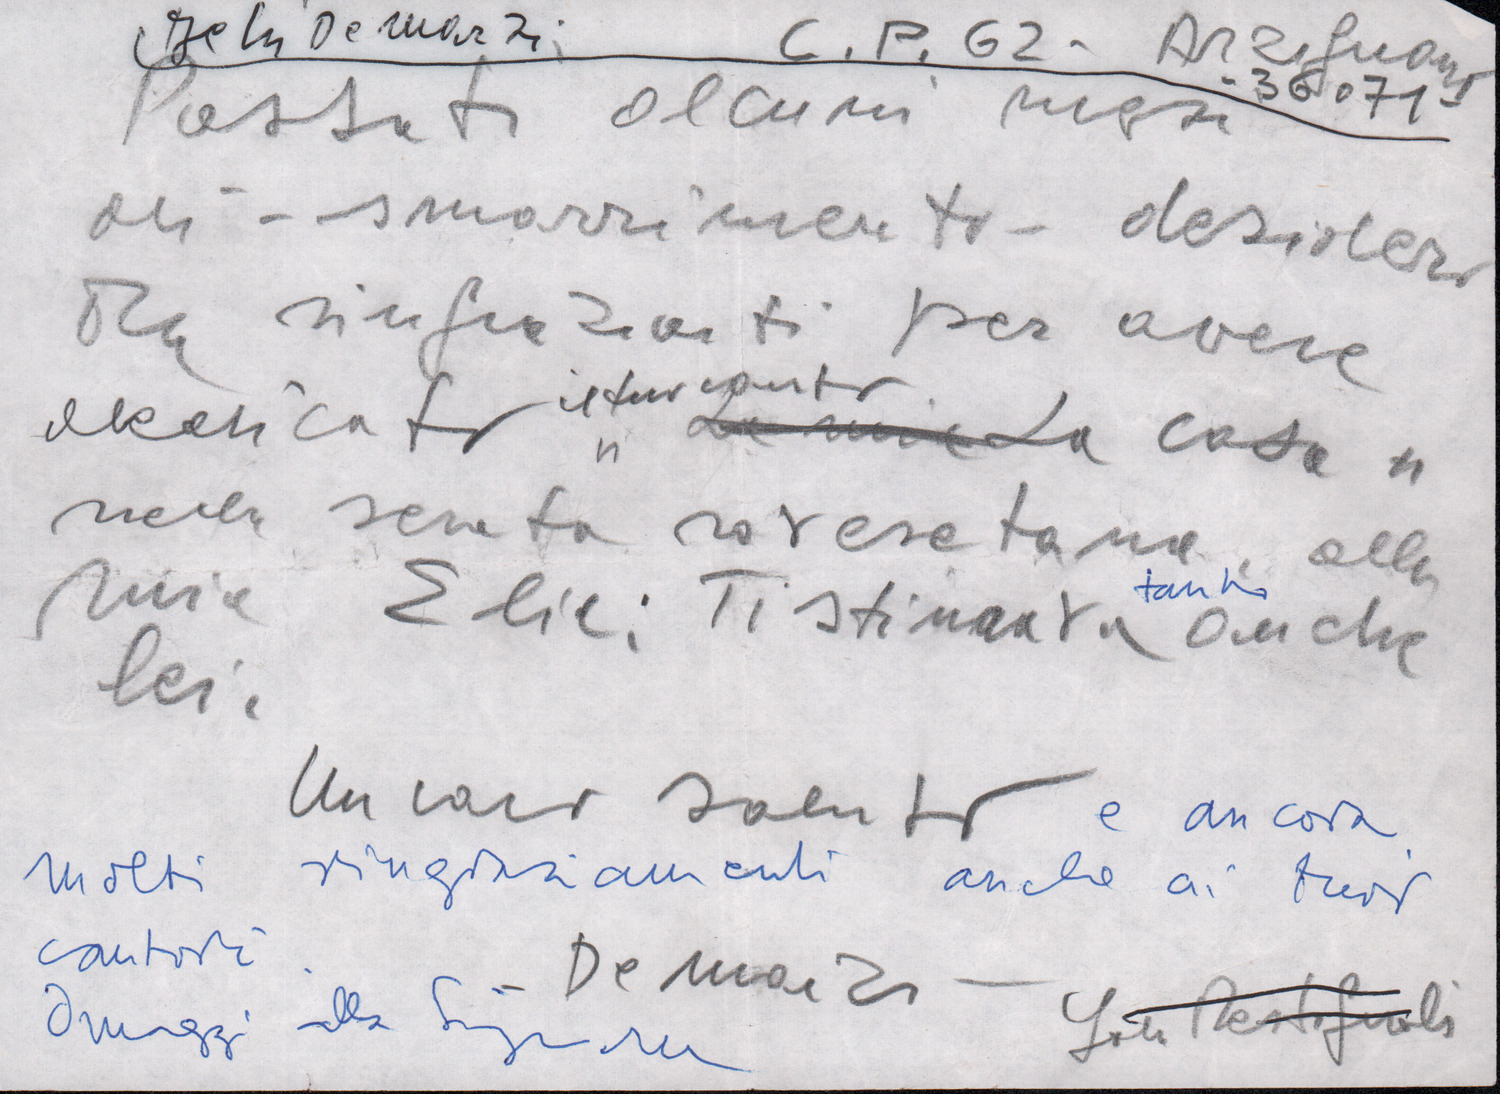 Bepi De Marzi, C.P. 62 - Arzignano
- 36071
Passati alcuni mesi
di - smarrimento - desidero
ringraziarti per avere
dedicato il tuo canto
" La mia La casa "
nella serata roveretana, alla
mia Elia; Ti stimava tanto anche
lei.
Un caro saluto e ancora
molti ringraziamenti anche ai tuoi
cantori
- De Marzi -
Omaggi alla Signora